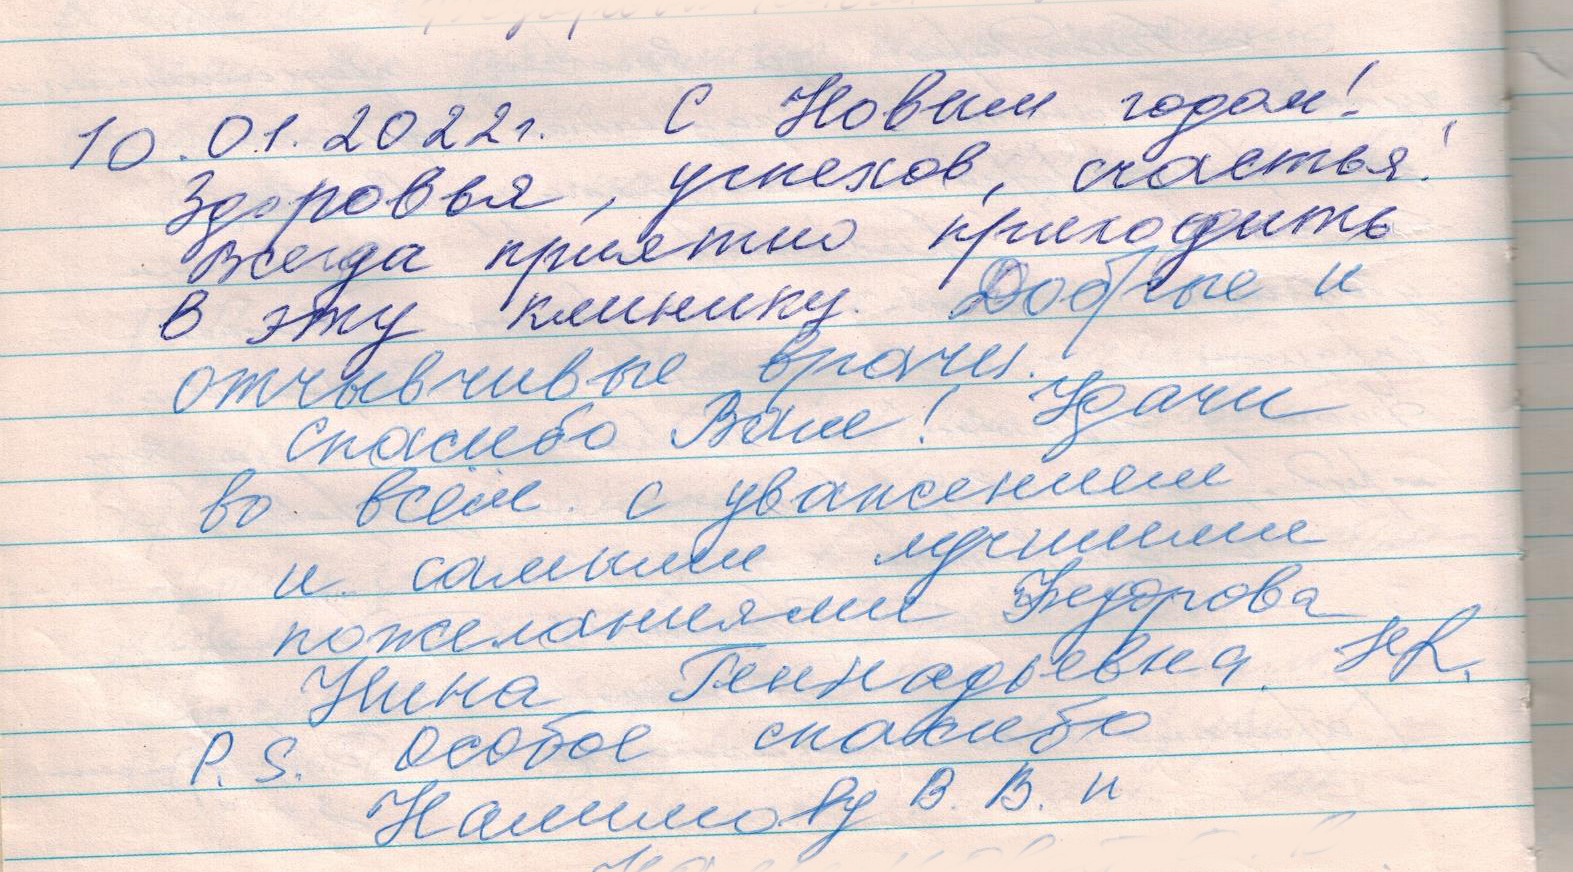 10.01.2022г. С Новым годом!
Здоровья, успехов, счастья!
Всегда приятно приходить
в эту клинику. Добрые и
отзывчивые врачи.
Спасибо Вам! Удачи
во всём. с уважением
и самыми лучшими
пожеланиями Федорова
Нина Геннадьевна.
P.S. Особое спасибо
Налимову В.В. и